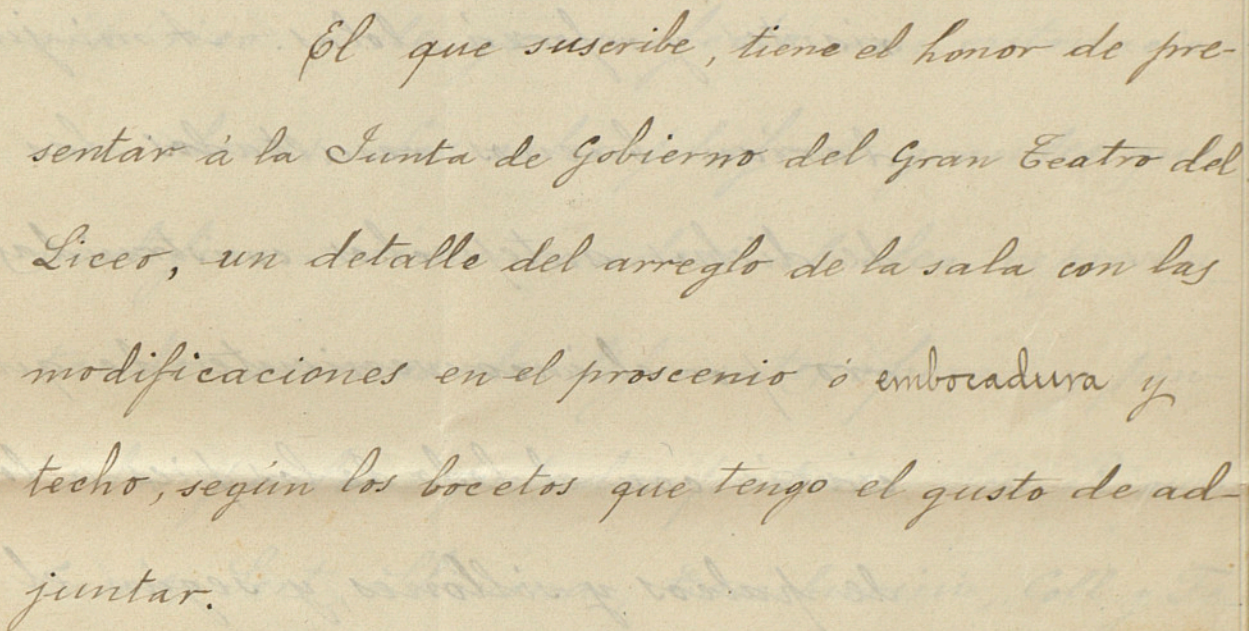 El que suscribe, tiene el honor de pre-
sentar á la Junta de Gobierno del Gran Teatro del
Liceo, un detalle del arreglo de la sala con las
modificaciones en el proscenio ó embocadura y
techo, según los bocetos que tengo el gusto de ad-
juntar.